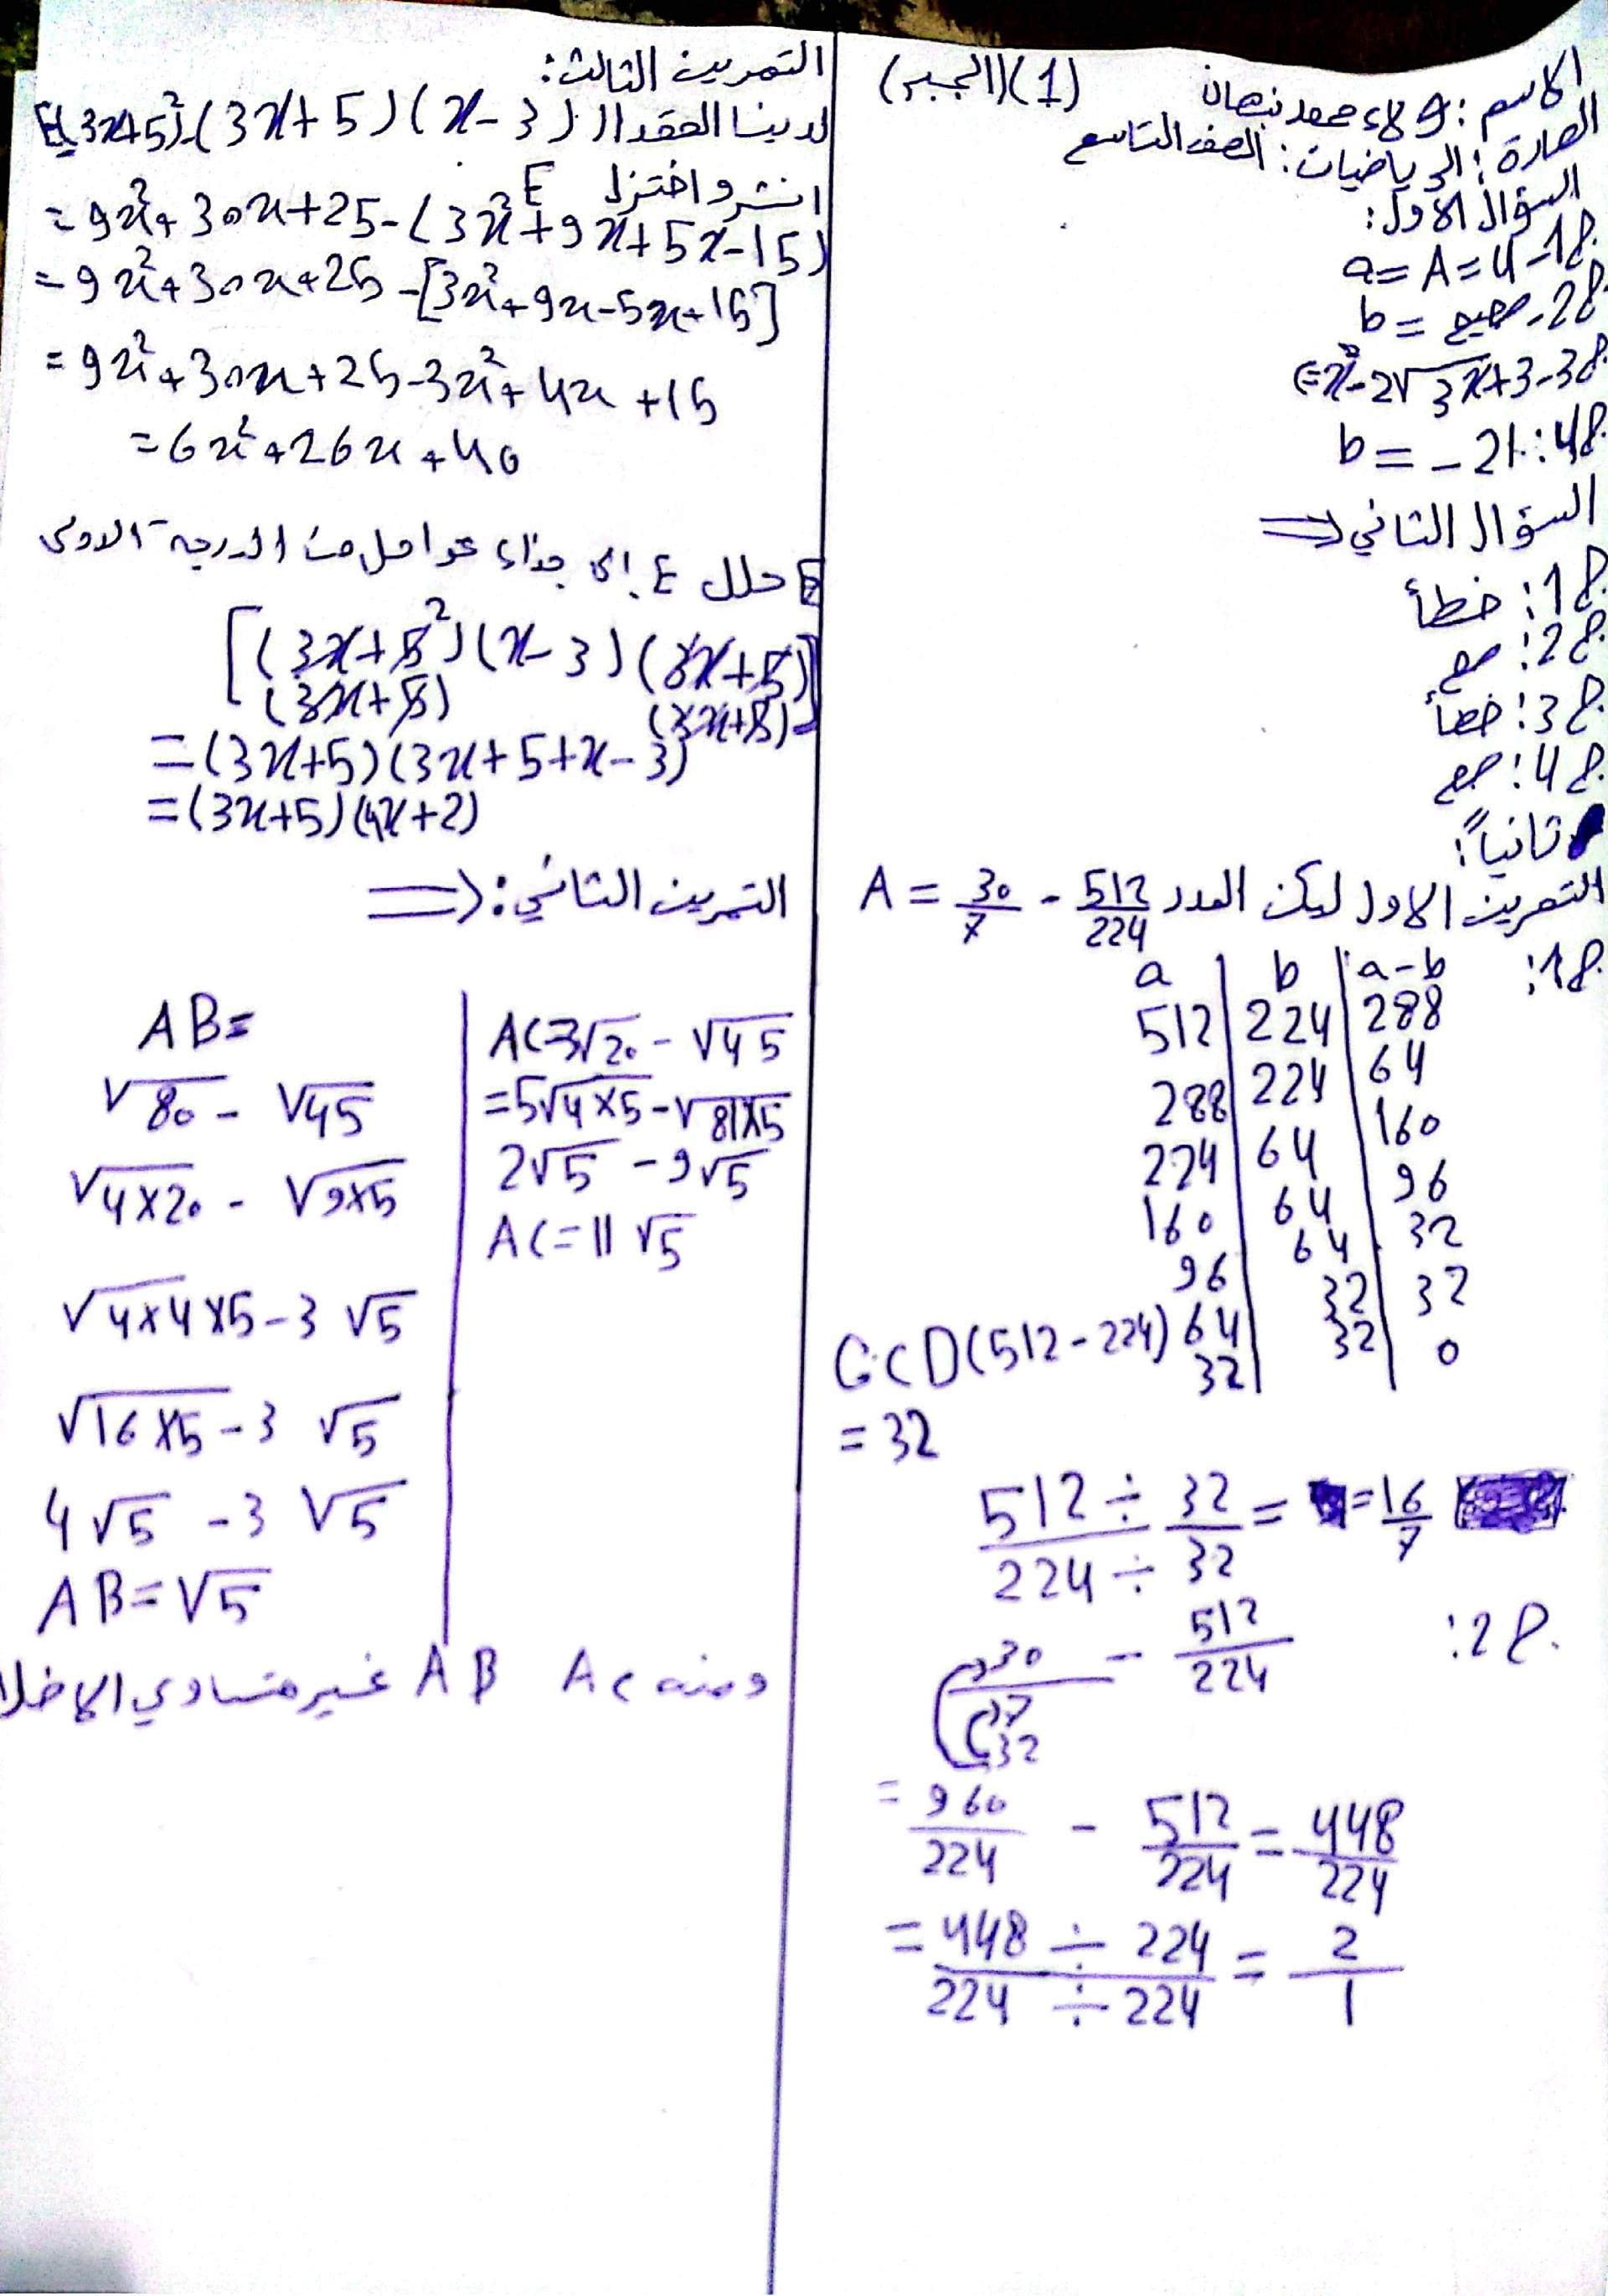 (1) (الجبر)
الاسم: ولاء محمد نبهان
المادة: الرياضيات: الصف التاسع
السؤال الأول:
a= A=4 -1م.
b= صحيح -2م.
c=x²-2√3x+3 -3م.
b= -21 :4م.
السؤال الثاني ⇐
1م: خطأ
2م: صح
3م: خطأ
4م: صح
ثانياً:
التمرين الاول ليكن العدد A = 30/7 - 512/224
1م:
a | b | a-b
512 | 224 | 288
288 | 224 | 64
224 | 64 | 160
160 | 64 | 96
96 | 64 | 32
64 | 32 | 32
32 | 32 | 0
GCD(512-224)
= 32
512 ÷ 32 / 224 ÷ 32 = = 16/7
2م:
30/7 - 512/224
32
= 960/224 - 512/224 = 448/224
= 448 ÷ 224 / 224 ÷ 224 = 2/1
التمرين الثالث:
لدينا المقدار E=(3x+5)²-(3x+5)(x-3)
انشر واختزل E
= 9x²+30x+25-(3x²+9x+5x-15)
= 9x²+30x+25-[3x²+9x-5x+15]
= 9x²+30x+25-3x²+4x+15
= 6x²+26x+40
حلل E إلى جذاء عوامل من الدرجة الاولى
[(3x+5²)(x-3)(3x+5)]
(3x+5) (3x+5)
=(3x+5)(3x+5+x-3)
=(3x+5)(4x+2)
التمرين الثاني: ⇐
AB=
√80 - √45
√4×20 - √9×5
√4×4×5-3 √5
√16×5-3 √5
4√5 -3 √5
AB=√5
AC=3√20 - √45
=5√4×5-√81×5
2√5 -9√5
AC=11√5
ومنه AC AB غير متساوي الاضلا